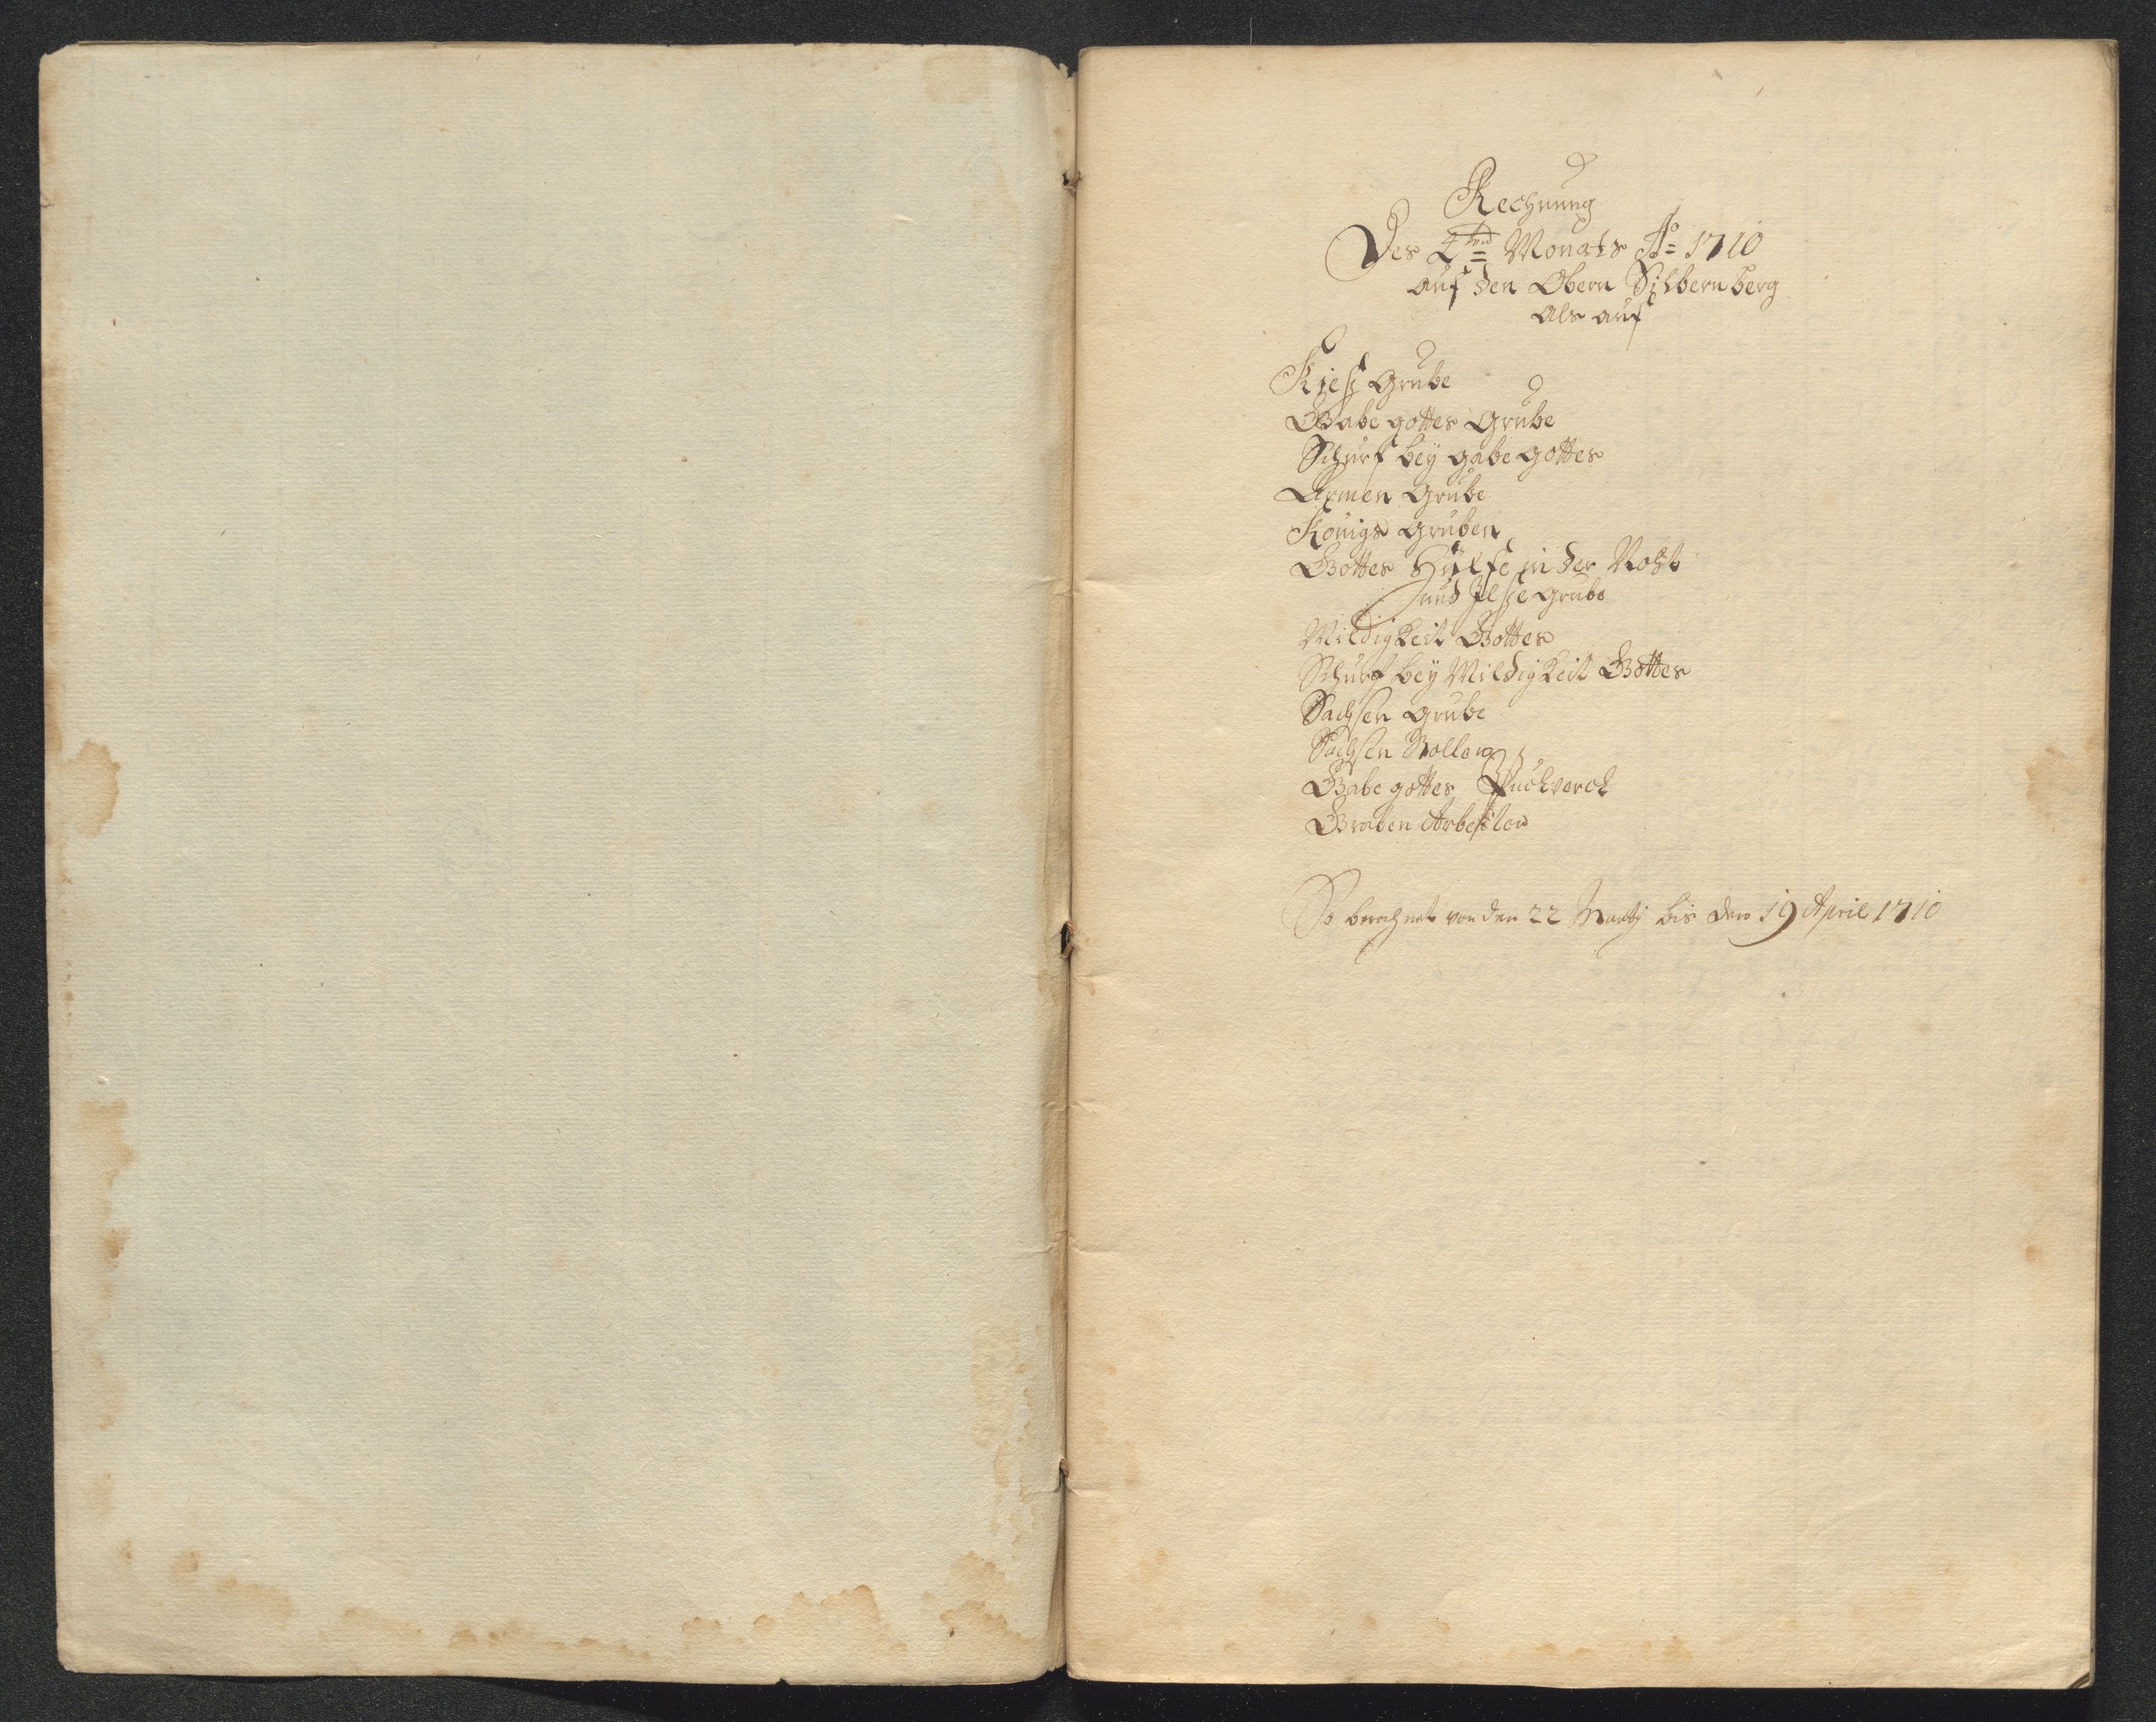 Rechnung
Des 4ten Monats Ao 1710
auf den Obern Silbernberg
als auf
Kieß Grube
Gabe gottes Grube
Schurf bey gabe gottes
Armen Grube
Königs Gruben
Gottes Hülfe in der Noht
und Ilße Grube
Mildigkeit Gottes
Schurf bey Mildigkeit Gottes
Sachsen Grube
Sachsen Stollen
Gabe gottes Puchwerck
Graben Arbeiten
So berechnet von den 22 Martj bis den 19 April 1710